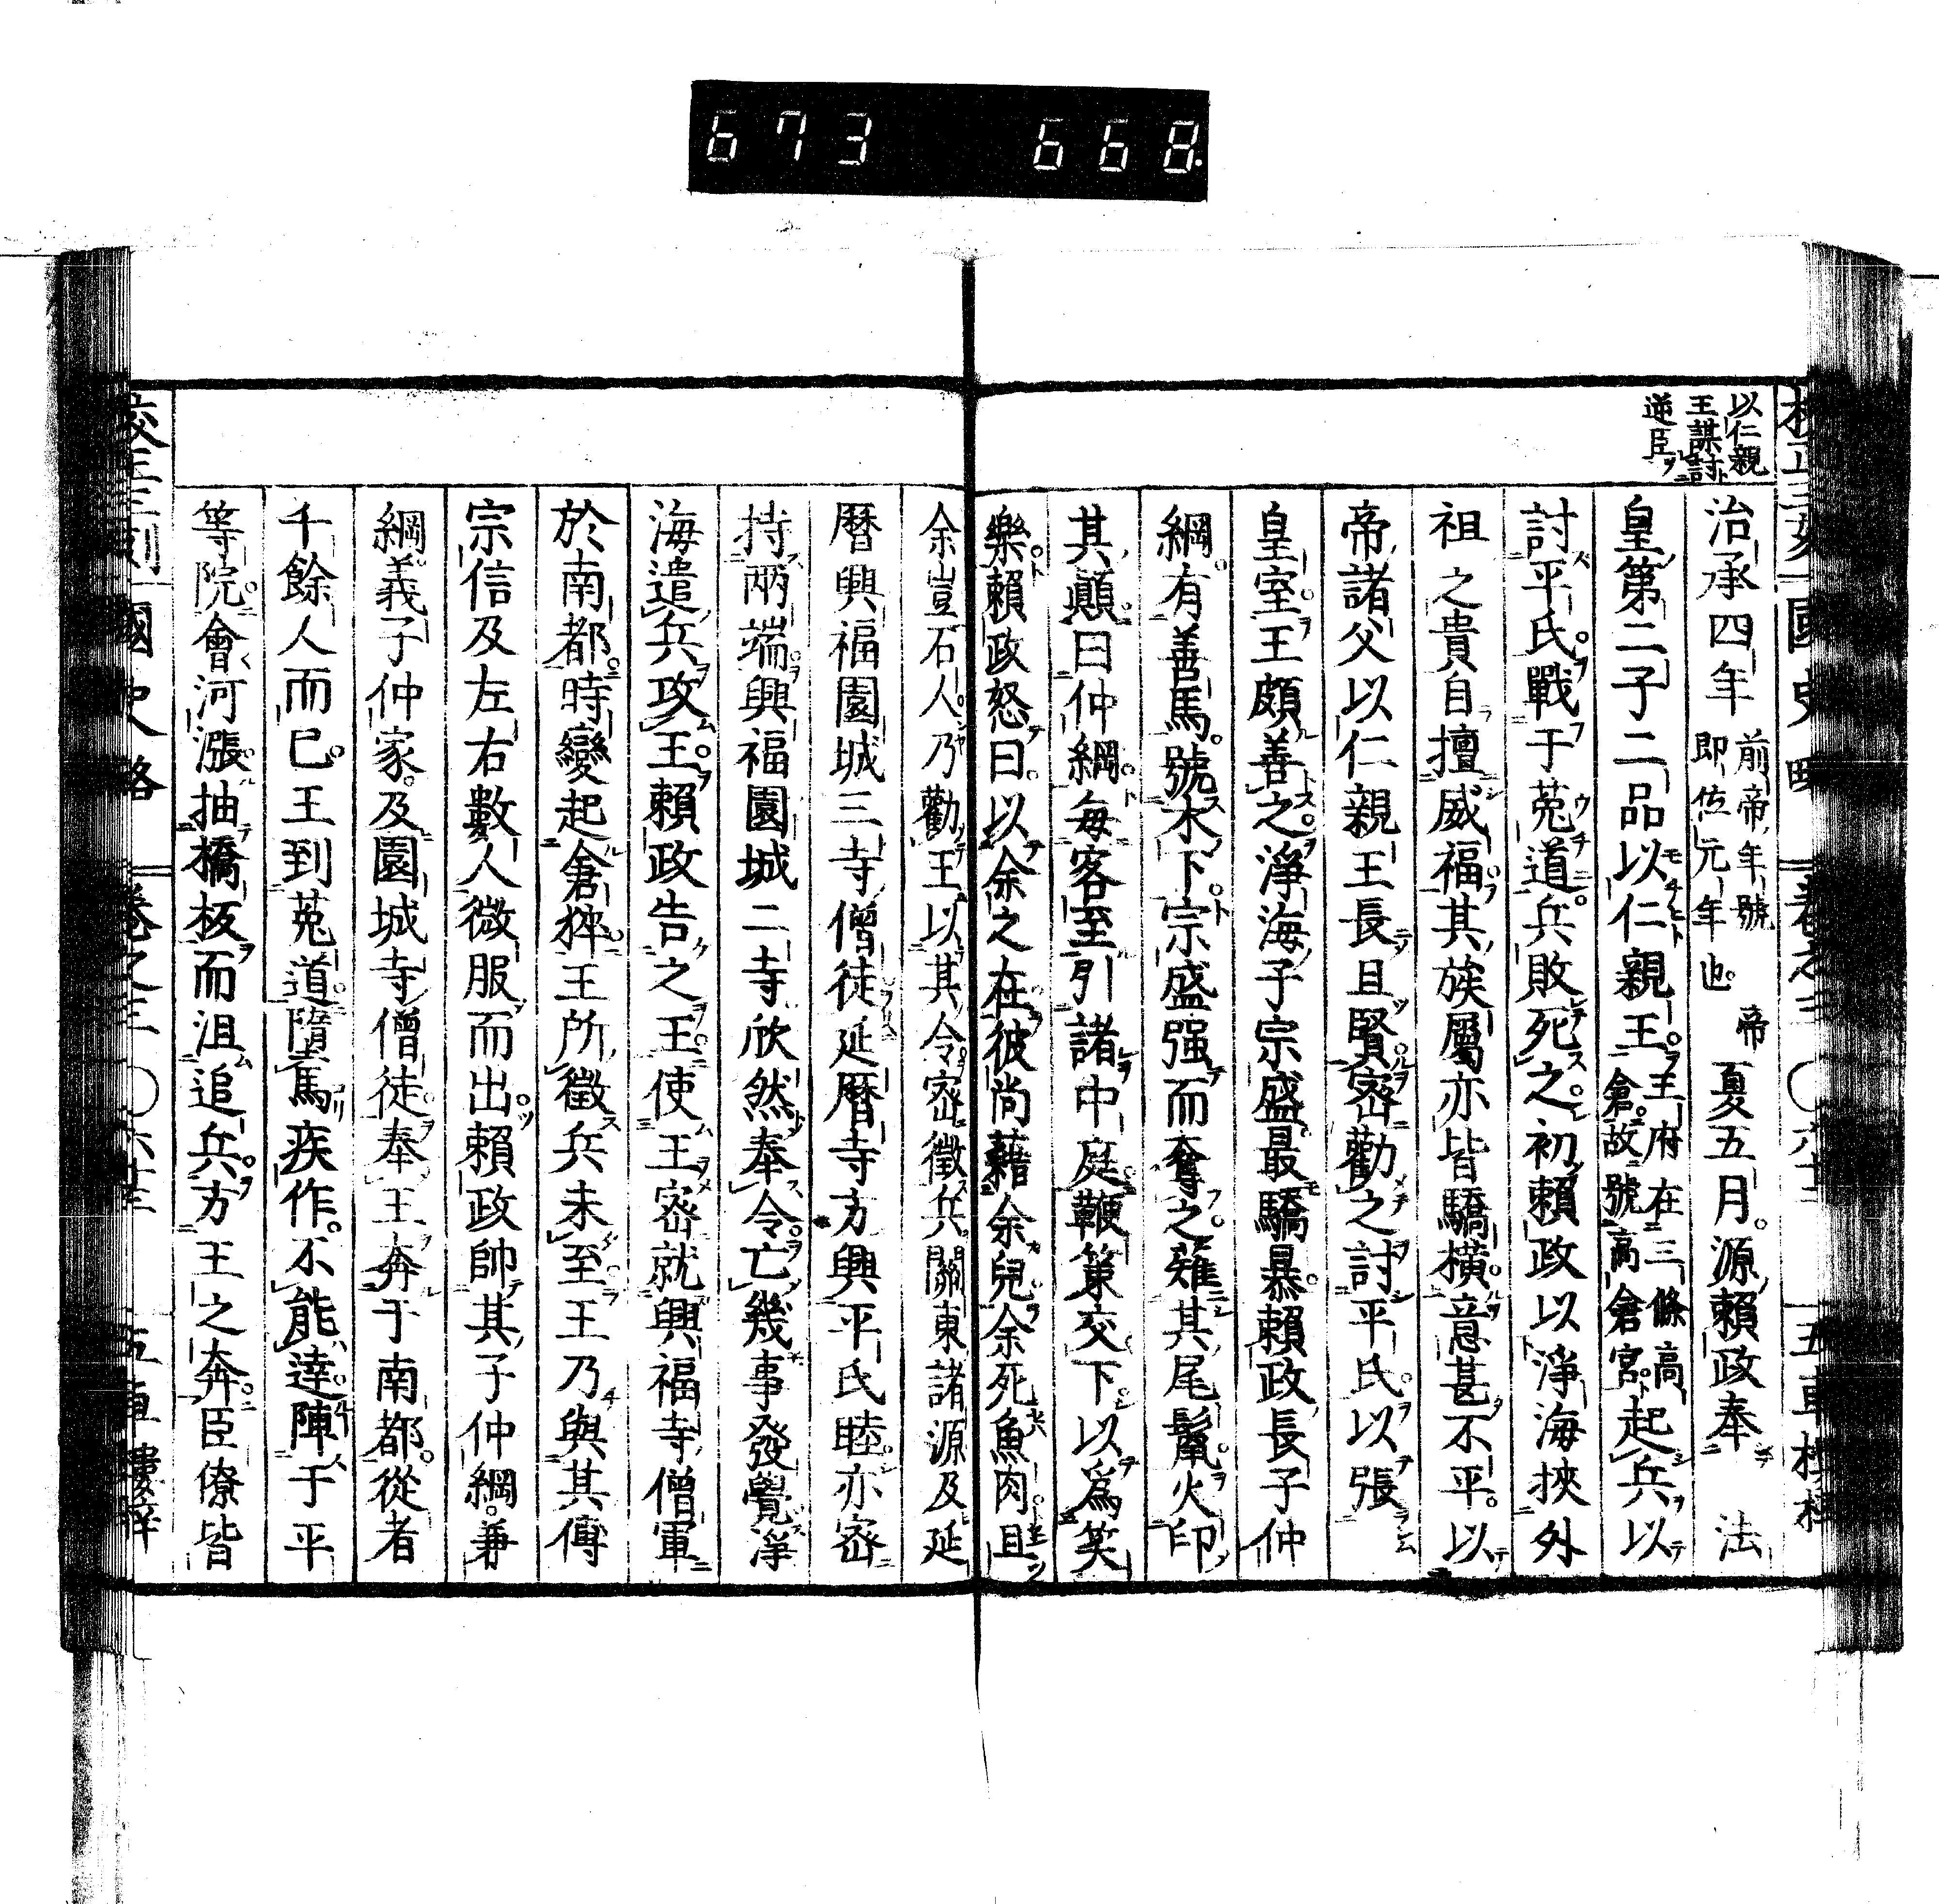 673 668.
以仁親
王謀討
逆臣
治承四年前帝年號即位元年也帝夏五月源賴政奉法
皇第二子二品以仁親王王府在三條高倉故號高倉宮起兵以
討平氏戰于菟道兵敗死之初賴政以淨海挾外
祖之貴自擅威福其族屬亦皆驕橫意甚不平以
帝諸父以仁親王長且賢密勸之討平氏以張
皇室王頗善之淨海子宗盛最驕暴賴政長子仲
綱有善馬號木下宗盛强而奪之薙其尾鬣火印
其顚曰仲綱每客至引諸中庭鞭箠交下以爲笑
樂賴政怒曰以余之在彼尚藉余兒余死魚肉且
余豈石人乃勸王以其令密徵兵關東諸源及延
曆興福園城三寺僧徒延曆寺方與平氏睦亦密
持兩端興福園城二寺欣然奉令亡幾事發覺淨
海遣兵攻王賴政告之王使王密就興福寺僧軍
於南都時變起倉猝王所徵兵未至王乃與其傅
宗信及左右數人微服而出賴政帥其子仲綱兼
綱義子仲家及園城寺僧徒奉王奔于南都從者
千餘人而已王到菟道墮馬疾作不能達陣于平
等院會河漲抽橋板而沮追兵方王之奔臣僚皆
國史略 卷之三 〇六十三 五車樓梓